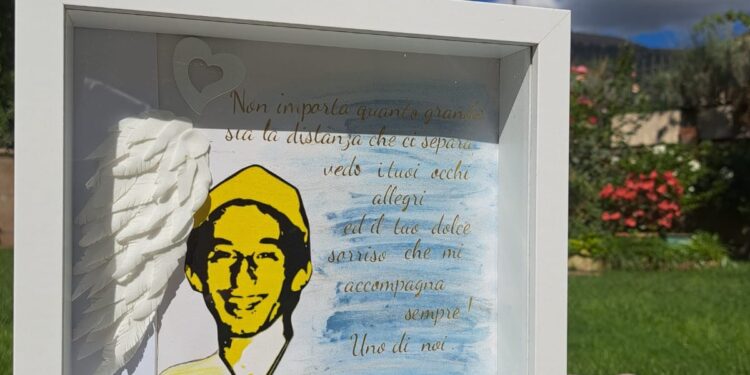 Non importa quanto grande
sia la distanza che ci separa
vedo i tuoi occhi
allegri
ed il tuo dolce
sorriso che mi
accompagna
sempre!
Uno di noi.